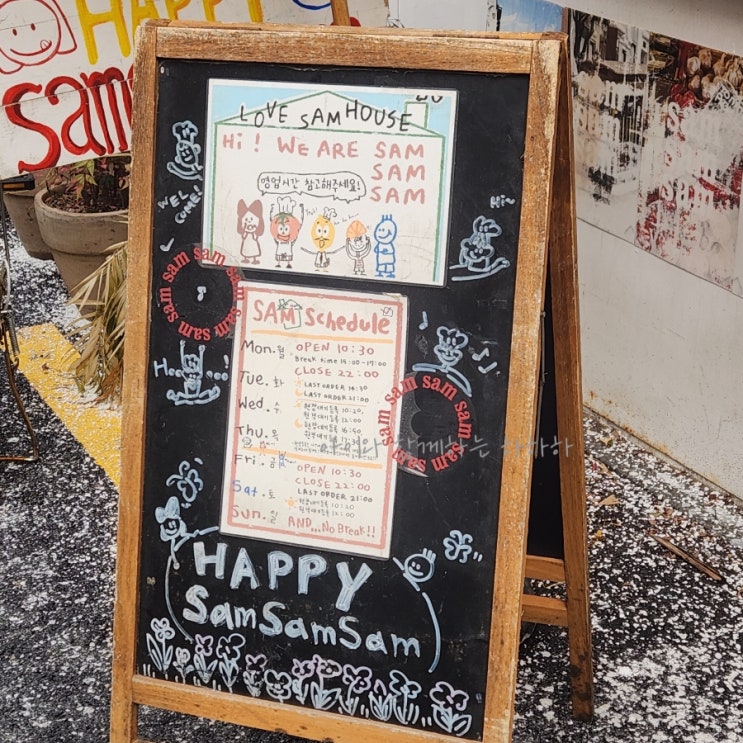 HAPPY
sam
LOVE SAMHOUSE
Hi ! WE ARE SAM
SAM
SAM
영업시간 참고해주세요!
WELCOME!
Hi~
sam sam sam sam sam sam
SAM Schedule
Mon. 월
Tue. 화
Wed. 수
Thu. 목
Fri. 금
Sat. 토
Sun. 일
OPEN 10:30
Break time 15:00-17:00
CLOSE 22:00
LAST ORDER 14:30
LAST ORDER 21:00
현장대기등록 10:20,
OPEN 10:30
CLOSE 22:00
LAST ORDER 21:00
AND...No BREAK!!
sam sam sam sam sam sam
HAPPY
SamSamSam